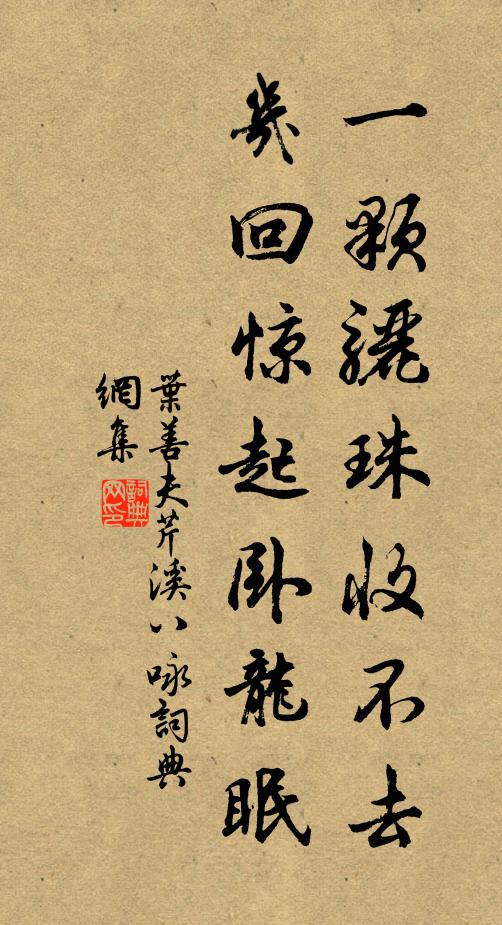 一顆驪珠收不去
幾回惊起卧龍眠
葉善夫芹溪八咏詞典
網集
詞典
网印